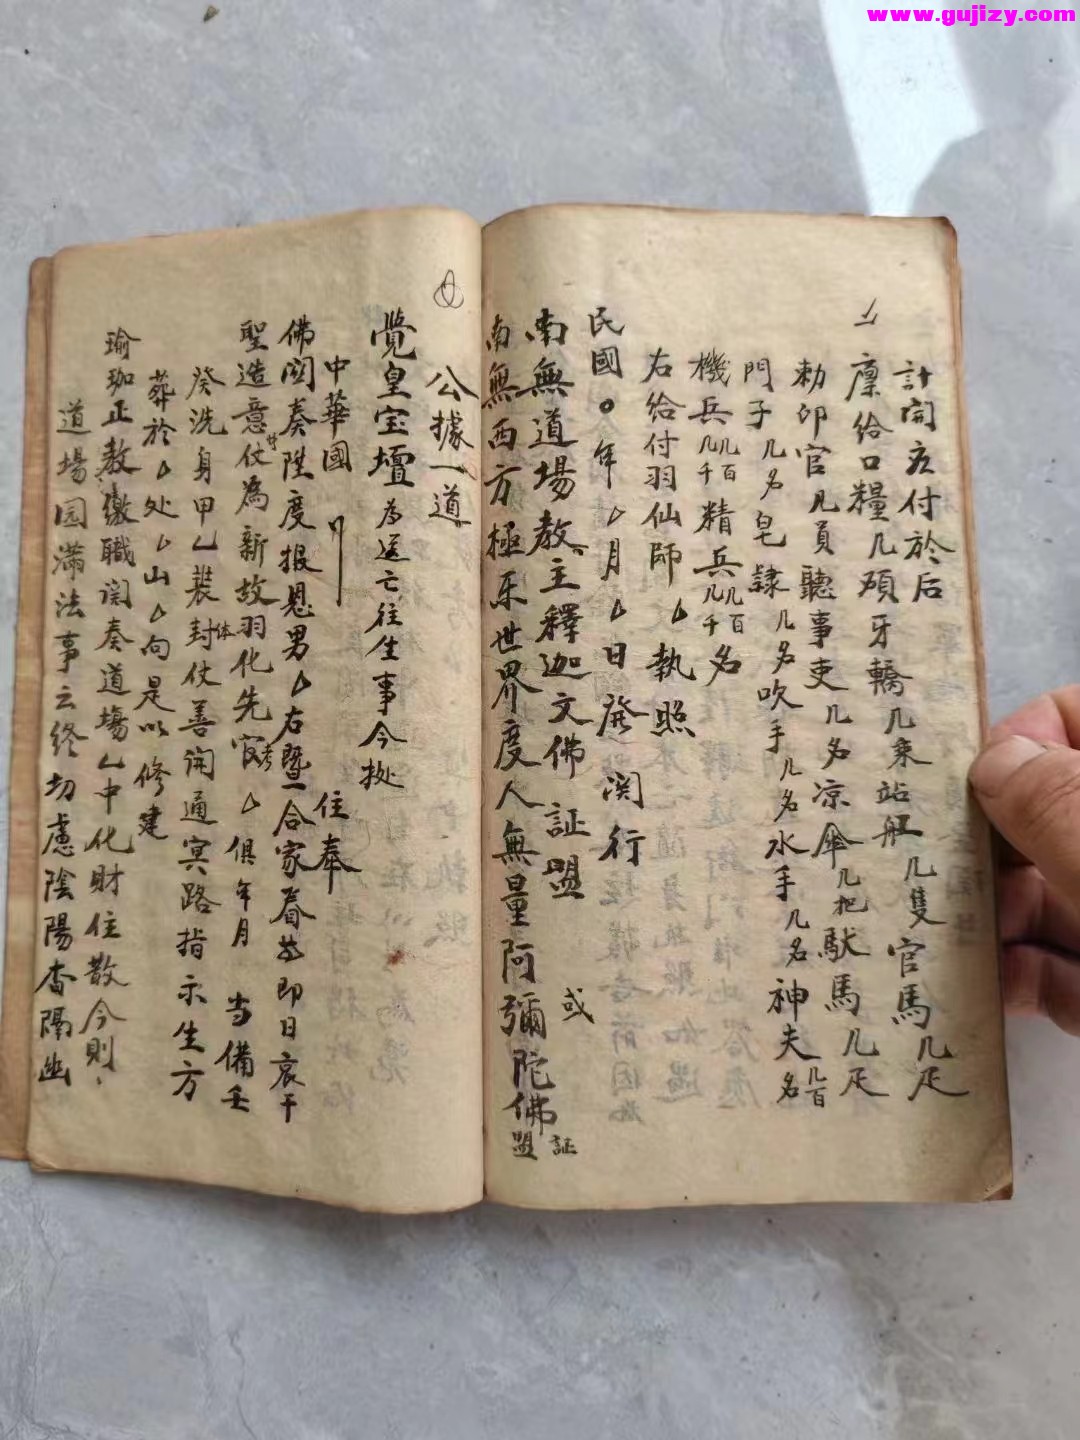 www.gujizy.com
計開交付於后
廪給口糧几碩牙轎几乘站舡几隻官馬几疋
勅印官几員聽事吏几名凉傘几把馱馬几疋
門子几名皂隸几名吹手几名水手几名神夫几百名
機兵几百几千精兵几百几千名
右給付羽仙師厶執照
民國〇年厶月厶日發関行
南無道場教主釋迦文佛 証盟 或
南無西方極乐世界度人無量阿彌陀佛 証盟
公據一道
覺皇宝壇為送亡往生事今拠
中華國 住奉
佛関奏陞度报恩男厶右暨一合家眷等即日哀干
聖造意仗為新故羽化先官考厶俱年月 当備壬
癸洗身甲乙裝封体仗善開通冥路指示生方
葬於厶处厶山厶向是以修建
瑜珈正教繳職関奏道塲乙中化財住散今則
道場园满法事云终切慮陰陽杳隔幽